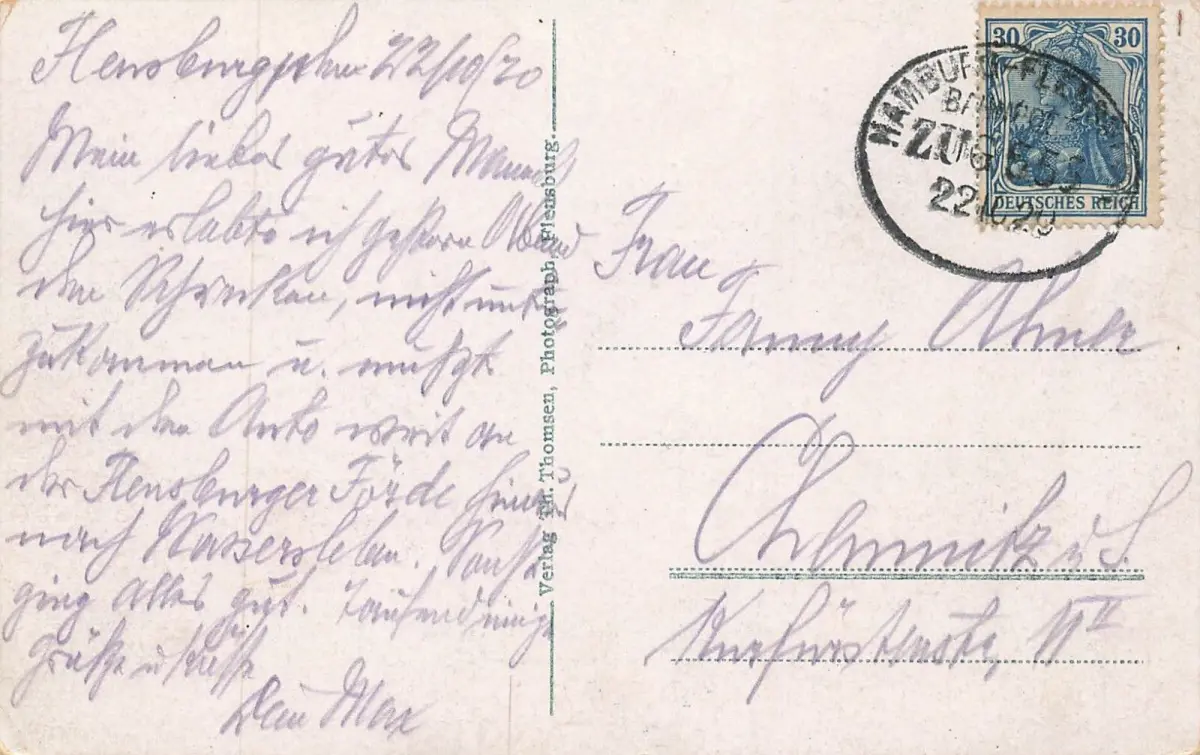 Flensburg, den 22/10/20
Mein liebes gutes Mannele
hier erlebte ich gestern Abend
den Schrecken, nicht unter
zukommen u. mußte
mit dem Auto weit an
der Flensburger Förde hinaus
nach Wassersleben. Sonst
ging alles gut. Tausend innige
Grüße u Küsse
Dein Max
Verlag Th. Thomsen, Photograph, Flensburg.
30 30
DEUTSCHES REICH
HAMBURG-FLENSBURG
BAHNPOST
ZUG
22.10.20
Frau
Fanny
Chemnitz i/S.
Kurfürstenstr.